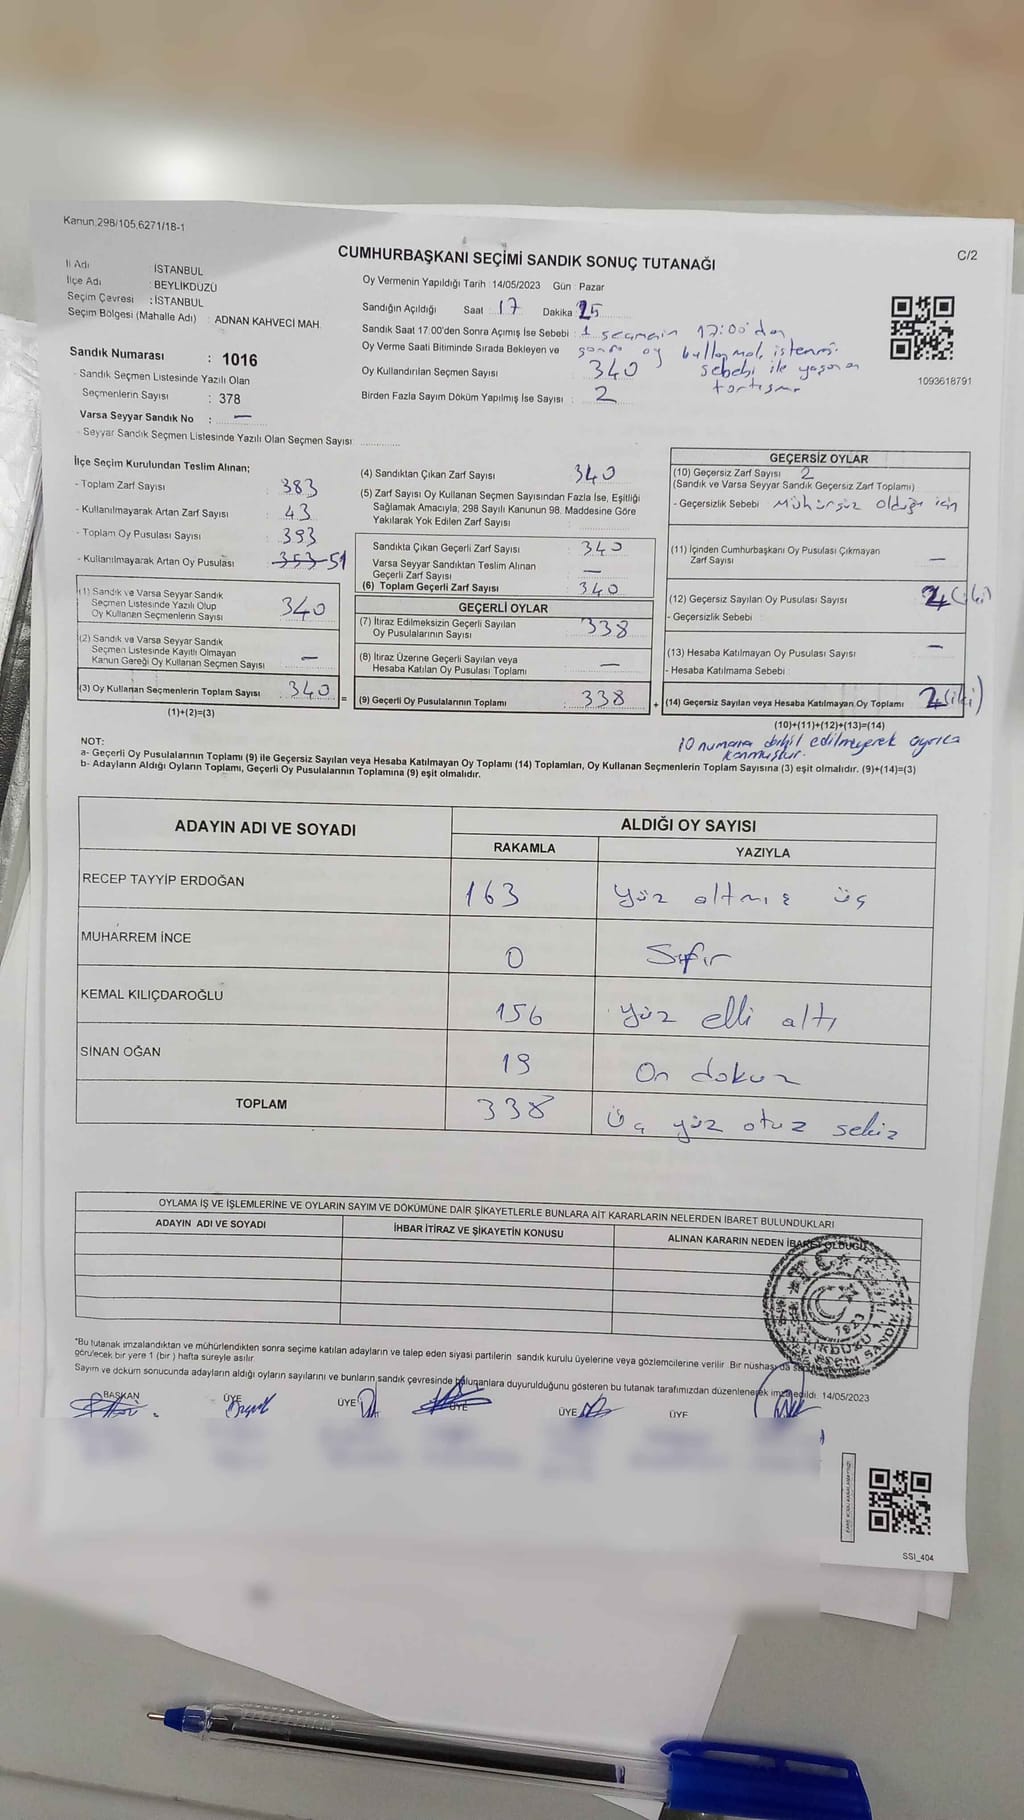 Kanun.298/105,6271/18-1
C/2
CUMHURBAŞKANI SEÇİMİ SANDIK SONUÇ TUTANAĞI
İl Adı : İSTANBUL
İlçe Adı : BEYLİKDÜZÜ
Seçim Çevresi : İSTANBUL
Seçim Bölgesi (Mahalle Adı) : ADNAN KAHVECİ MAH.
Sandık Numarası : 1016
- Sandık Seçmen Listesinde Yazılı Olan
Seçmenlerin Sayısı : 378
Varsa Seyyar Sandık No : —
- Seyyar Sandık Seçmen Listesinde Yazılı Olan Seçmen Sayısı
Oy Vermenin Yapıldığı Tarih : 14/05/2023 Gün : Pazar
Sandığın Açıldığı Saat : 17 Dakika : 25
Sandık Saat 17:00'den Sonra Açılmış İse Sebebi : 1 seçmenin 17:00'den
sonra oy kullanmak istemesi
sebebi ile yaşanan
tartışma
Oy Verme Saati Bitiminde Sırada Bekleyen ve
Oy Kullandırılan Seçmen Sayısı : 340
Birden Fazla Sayım Döküm Yapılmış İse Sayısı : 2
1093618791
İlçe Seçim Kurulundan Teslim Alınan;
- Toplam Zarf Sayısı : 383
- Kullanılmayarak Artan Zarf Sayısı : 43
- Toplam Oy Pusulası Sayısı : 393
- Kullanılmayarak Artan Oy Pusulası : 353 51
(1) Sandık ve Varsa Seyyar Sandık
Seçmen Listesinde Yazılı Olup
Oy Kullanan Seçmenlerin Sayısı : 340
(2) Sandık ve Varsa Seyyar Sandık
Seçmen Listesinde Kayıtlı Olmayan
Kanun Gereği Oy Kullanan Seçmen Sayısı : —
(3) Oy Kullanan Seçmenlerin Toplam Sayısı : 340 =
(1)+(2)=(3)
(4) Sandıktan Çıkan Zarf Sayısı : 340
(5) Zarf Sayısı Oy Kullanan Seçmen Sayısından Fazla İse, Eşitliği
Sağlamak Amacıyla, 298 Sayılı Kanunun 98. Maddesine Göre
Yakılarak Yok Edilen Zarf Sayısı :
Sandıkta Çıkan Geçerli Zarf Sayısı : 340
Varsa Seyyar Sandıktan Teslim Alınan
Geçerli Zarf Sayısı : —
(6) Toplam Geçerli Zarf Sayısı : 340
GEÇERLİ OYLAR
(7) İtiraz Edilmeksizin Geçerli Sayılan
Oy Pusulalarının Sayısı : 338
(8) İtiraz Üzerine Geçerli Sayılan veya
Hesaba Katılan Oy Pusulası Toplamı : —
(9) Geçerli Oy Pusulalarının Toplamı : 338 +
GEÇERSİZ OYLAR
(10) Geçersiz Zarf Sayısı : 2
(Sandık ve Varsa Seyyar Sandık Geçersiz Zarf Toplamı)
- Geçersizlik Sebebi : Mühürsüz olduğu için
(11) İçinden Cumhurbaşkanı Oy Pusulası Çıkmayan
Zarf Sayısı : —
(12) Geçersiz Sayılan Oy Pusulası Sayısı : 2 (iki)
- Geçersizlik Sebebi :
(13) Hesaba Katılmayan Oy Pusulası Sayısı : —
- Hesaba Katılmama Sebebi :
(14) Geçersiz Sayılan veya Hesaba Katılmayan Oy Toplamı : 2 (iki)
(10)+(11)+(12)+(13)=(14)
10 numara dahil edilmeyerek ayrıca
konmuştur.
NOT:
a- Geçerli Oy Pusulalarının Toplamı (9) ile Geçersiz Sayılan veya Hesaba Katılmayan Oy Toplamı (14) Toplamları, Oy Kullanan Seçmenlerin Toplam Sayısına (3) eşit olmalıdır. (9)+(14)=(3)
b- Adayların Aldığı Oyların Toplamı, Geçerli Oy Pusulalarının Toplamına (9) eşit olmalıdır.
ADAYIN ADI VE SOYADI ALDIĞI OY SAYISI
RAKAMLA YAZIYLA
RECEP TAYYİP ERDOĞAN 163 yüz altmış üç
MUHARREM İNCE 0 Sıfır
KEMAL KILIÇDAROĞLU 156 yüz elli altı
SİNAN OĞAN 19 On dokuz
TOPLAM 338 Üç yüz otuz sekiz
OYLAMA İŞ VE İŞLEMLERİNE VE OYLARIN SAYIM VE DÖKÜMÜNE DAİR ŞİKAYETLERLE BUNLARA AİT KARARLARIN NELERDEN İBARET BULUNDUKLARI
ADAYIN ADI VE SOYADI İHBAR İTİRAZ VE ŞİKAYETİN KONUSU ALINAN KARARIN NEDEN İBARET OLDUĞU
*Bu tutanak imzalandıktan ve mühürlendikten sonra seçime katılan adayların ve talep eden siyasi partilerin sandık kurulu üyelerine veya gözlemcilerine verilir. Bir nüshası da
görülecek bir yere 1 (bir) hafta süreyle asılır.
Sayım ve döküm sonucunda adayların aldığı oyların sayılarını ve bunların sandık çevresinde bulunanlara duyurulduğunu gösteren bu tutanak tarafımızdan düzenlenerek imza edildi. 14/05/2023
BAŞKAN ÜYE ÜYE ÜYE ÜYE ÜYE
1923
SSI_404